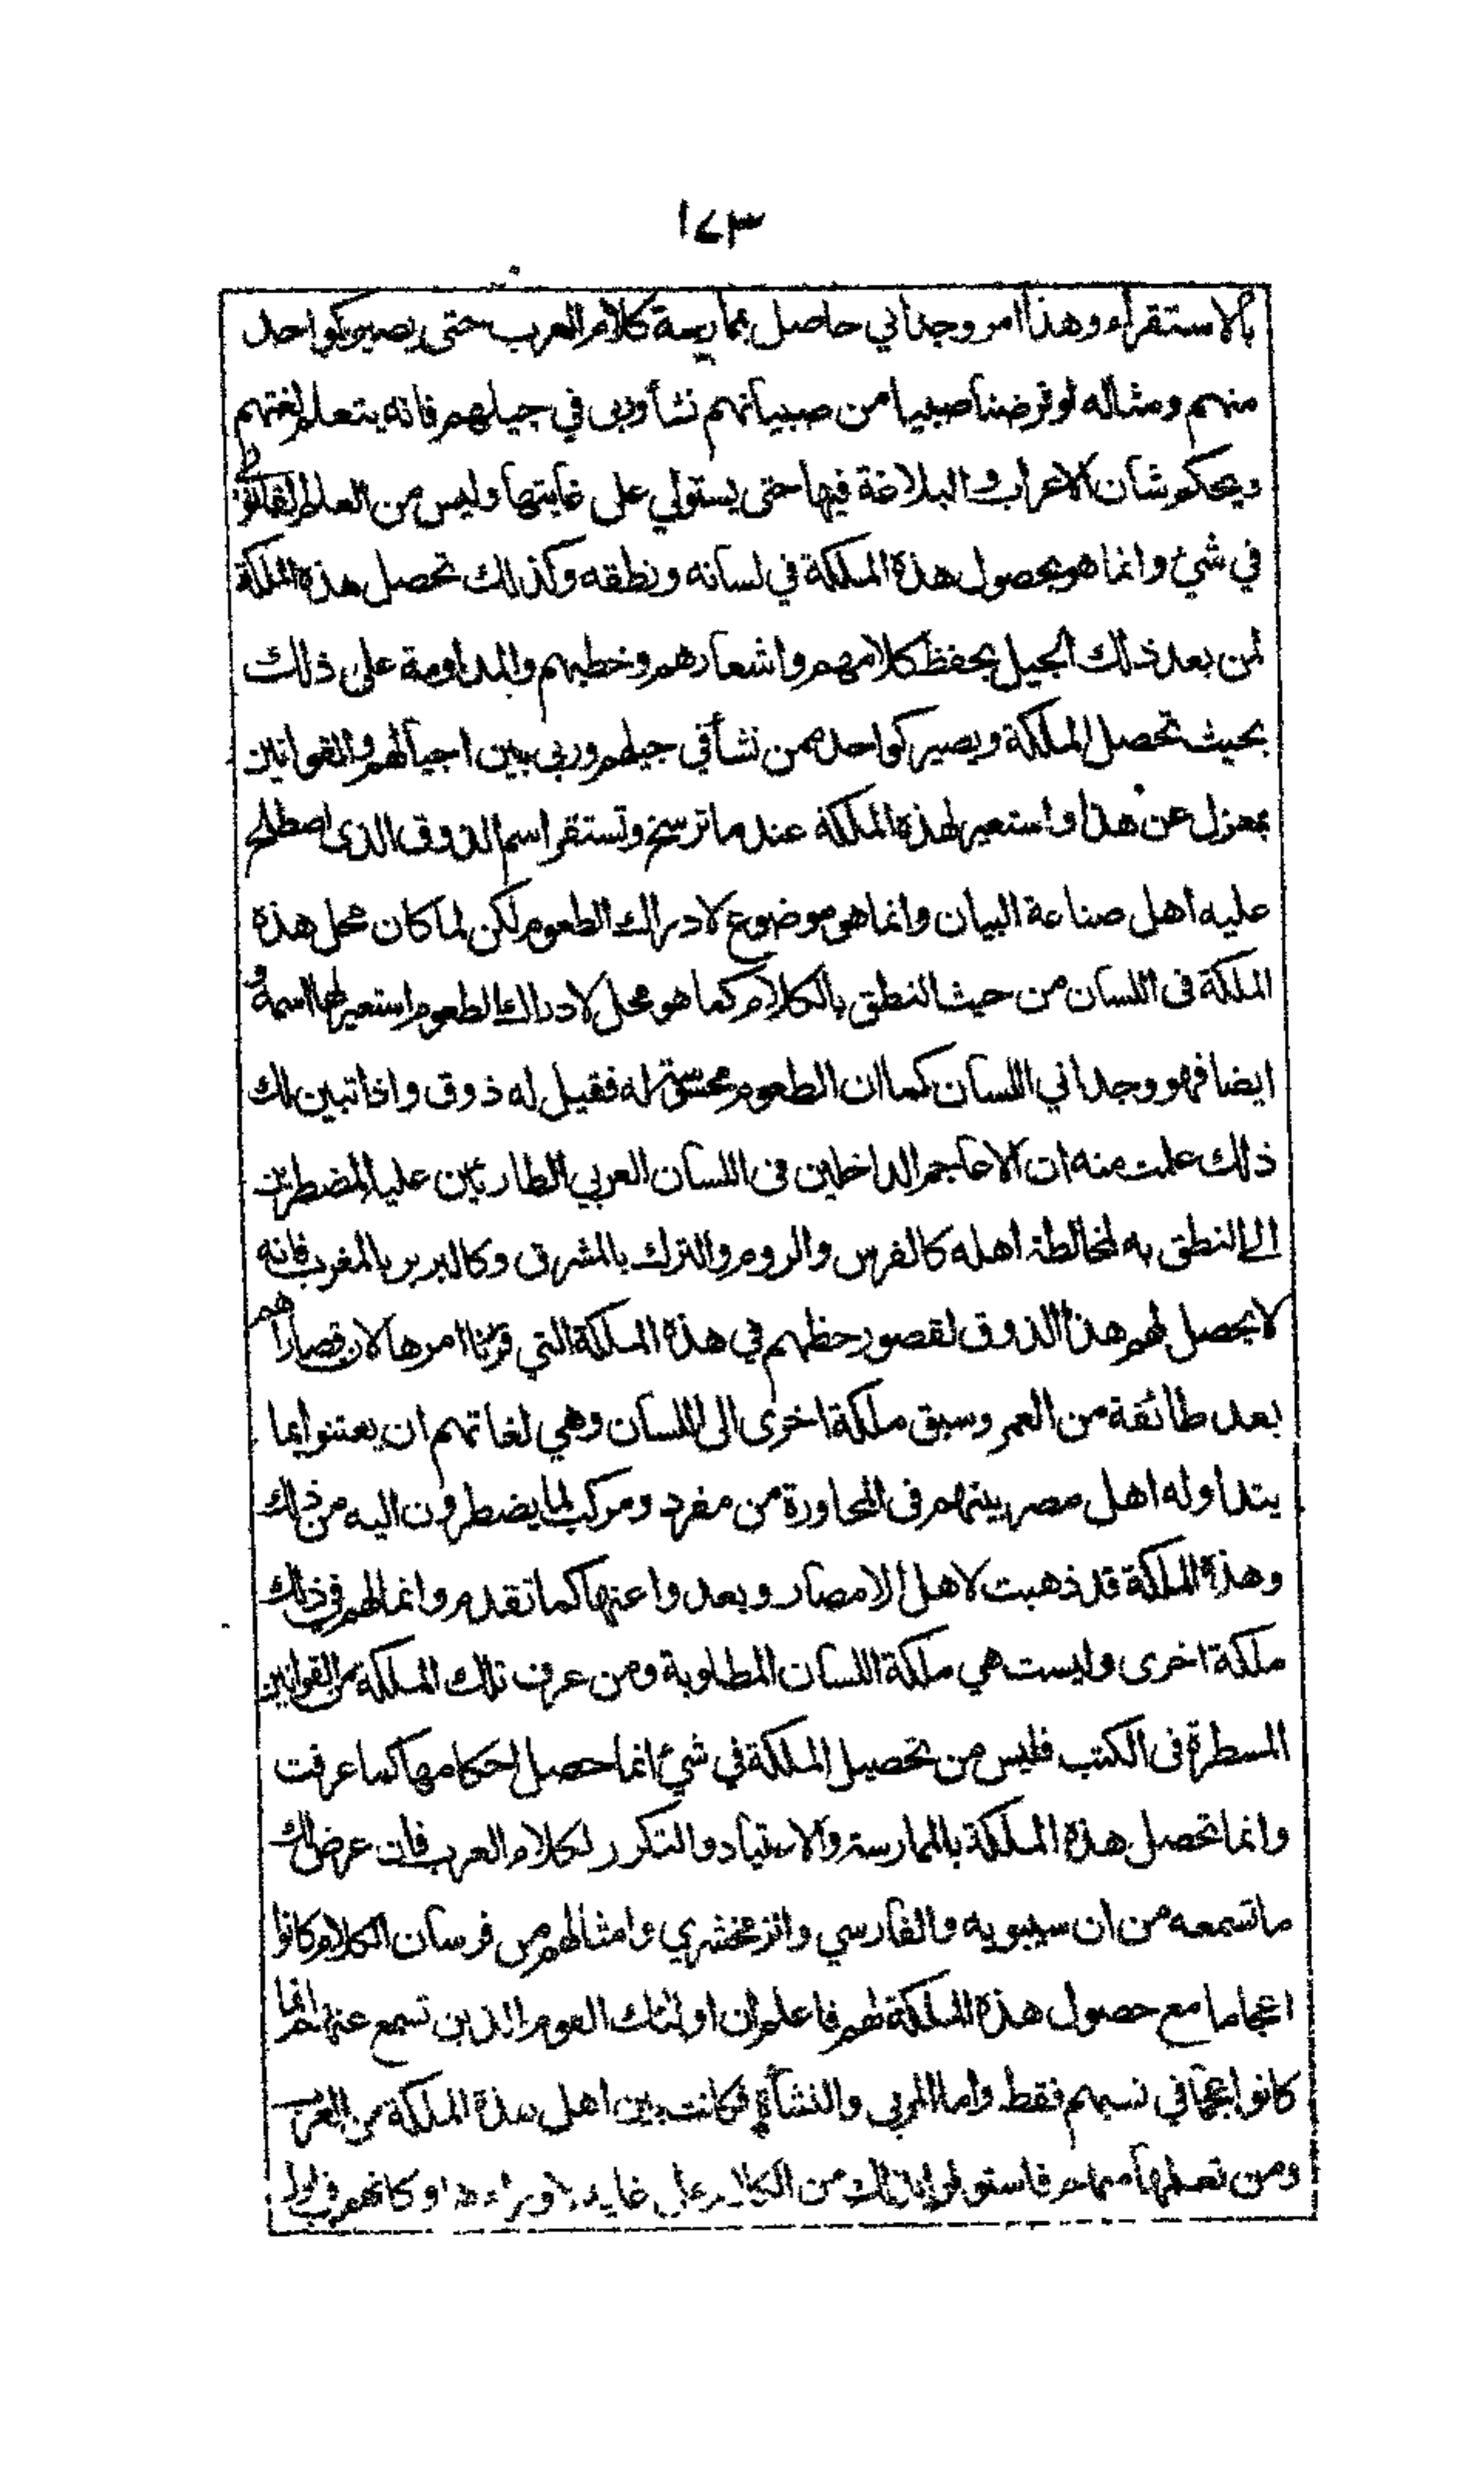 ١٧٣
بالاستقراء وهذا امر وجداني حاصل بممارسة كلام العرب حتى يصير كواحد
منهم ومثاله لو فرضنا صبيا من صبيانهم نشأ وربى في جيلهم فانه يتعلم لغتهم
ويحكم شان الاعراب والبلاغة فيها حتى يستولي على غايتها وليس من العلم القانوني
في شئ وانما هو بحصول هذه الملكة في لسانه ونطقه وكذالك تحصل هذه الملكة
لمن بعد ذلك الجيل بحفظ كلامهم واشعارهم وخطبهم والمداومة على ذلك
بحيث تحصل الملكة ويصير كواحد ممن نشأ في جيلهم وربى بين اجيالهم والقوانين
بمعزل عن هذا واستعير لهذه الملكة عند ما ترسخ وتستقر اسم الذوق الذى اصطلح
عليه اهل صناعة البيان وانما هو موضوع لادراك الطعوم لكن لما كان محل هذه
الملكة فى اللسان من حيث النطق بالكلام كما هو محل لادراك الطعوم استعير لها اسمه و
ايضا فهو وجداني اللسان كما ان الطعوم محسوسة له فقيل له ذوق واذا تبين لك
ذلك علمت منه ان الاعاجم الداخلين فى اللسان العربي الطارئين عليه المضطرين
الى النطق به لمخالطة اهله كالفرس والروم والترك بالمشرق وكالبربر بالمغرب فانه
لا يحصل لهم هذا الذوق لقصور حظهم في هذه الملكة التي قررنا امرها لان قصاراهم
بعد طائفة من العمر وسبق ملكة اخرى الى اللسان وهي لغاتهم ان يعتنوا بما
يتداوله اهل مصر بينهم فى المحاورة من مفرد ومركب لما يضطرون اليه من ذلك
وهذه الملكة قد ذهبت لاهل الامصار وبعدوا عنها كما تقدم وانما لهم في ذلك
ملكة اخرى وليست هي ملكة اللسان المطلوبة ومن عرف تلك الملكة من القوانين
المسطرة فى الكتب فليس من تحصيل الملكة في شئ انما حصل احكامها كما عرفت
وانما تحصل هذه الملكة بالممارسة والاعتياد والتكرر لكلام العرب فان عرض لك
ما تسمعه من ان سيبويه والفارسي والزمخشري وامثالهم من فرسان الكلام كانوا
اعجاما مع حصول هذه الملكة لهم فاعلم ان اولئك القوم الذين تسمع عنهم انما
كانوا عجما في نسبهم فقط واما المربى والنشأة فكانت بين اهل هذه الملكة من العرب
ومن تعلمها منهم فاستولوا بذلك من الكلام على غاية لا وراءها وكانهم في اول